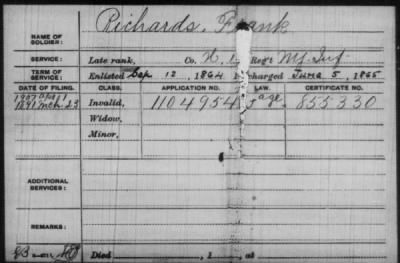 Richards, Frank
NAME OF SOLDIER:
SERVICE: Late rank, Co. H, 1 Reg't Inf
TERM OF SERVICE: Enlisted Sep 12, 1864 Discharged June 5, 1865
DATE OF FILING. CLASS. APPLICATION NO. LAW. CERTIFICATE NO.
1907 1
1891 Mch. 23 Invalid, 1104954 age 855330
Widow,
Minor,
ADDITIONAL SERVICES:
REMARKS:
Died , 1 , at